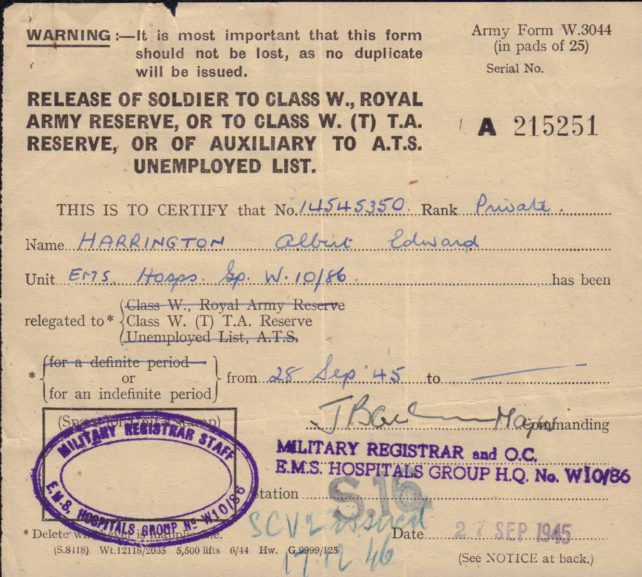 WARNING :—It is most important that this form
should not be lost, as no duplicate
will be issued.
Army Form W.3044
(in pads of 25)
Serial No.
RELEASE OF SOLDIER TO CLASS W., ROYAL
ARMY RESERVE, OR TO CLASS W. (T) T.A.
RESERVE, OR OF AUXILIARY TO A.T.S.
UNEMPLOYED LIST.
A 215251
THIS IS TO CERTIFY that No. 14545350 Rank Private.
Name HARRINGTON Albert Edward
Unit EMS. Hosps. Gp. W.10/86 has been
relegated to *
Class W., Royal Army Reserve
Class W. (T) T.A. Reserve
Unemployed List, A.T.S.
* for a definite period
or
for an indefinite period
from 28 Sep '45 to
Major Commanding
MILITARY REGISTRAR STAFF
E.M.S. HOSPITALS GROUP No W10/86
MILITARY REGISTRAR and O.C.
E.M.S. HOSPITALS GROUP H.Q. No. W10/86
Station
S15
SCV2 issued
17.12.46
Date 27 SEP 1945
* Delete
(S.8118) Wt.12118/2035 5,500 lifts 6/44 Hw. G.9999/125
(See NOTICE at back.)